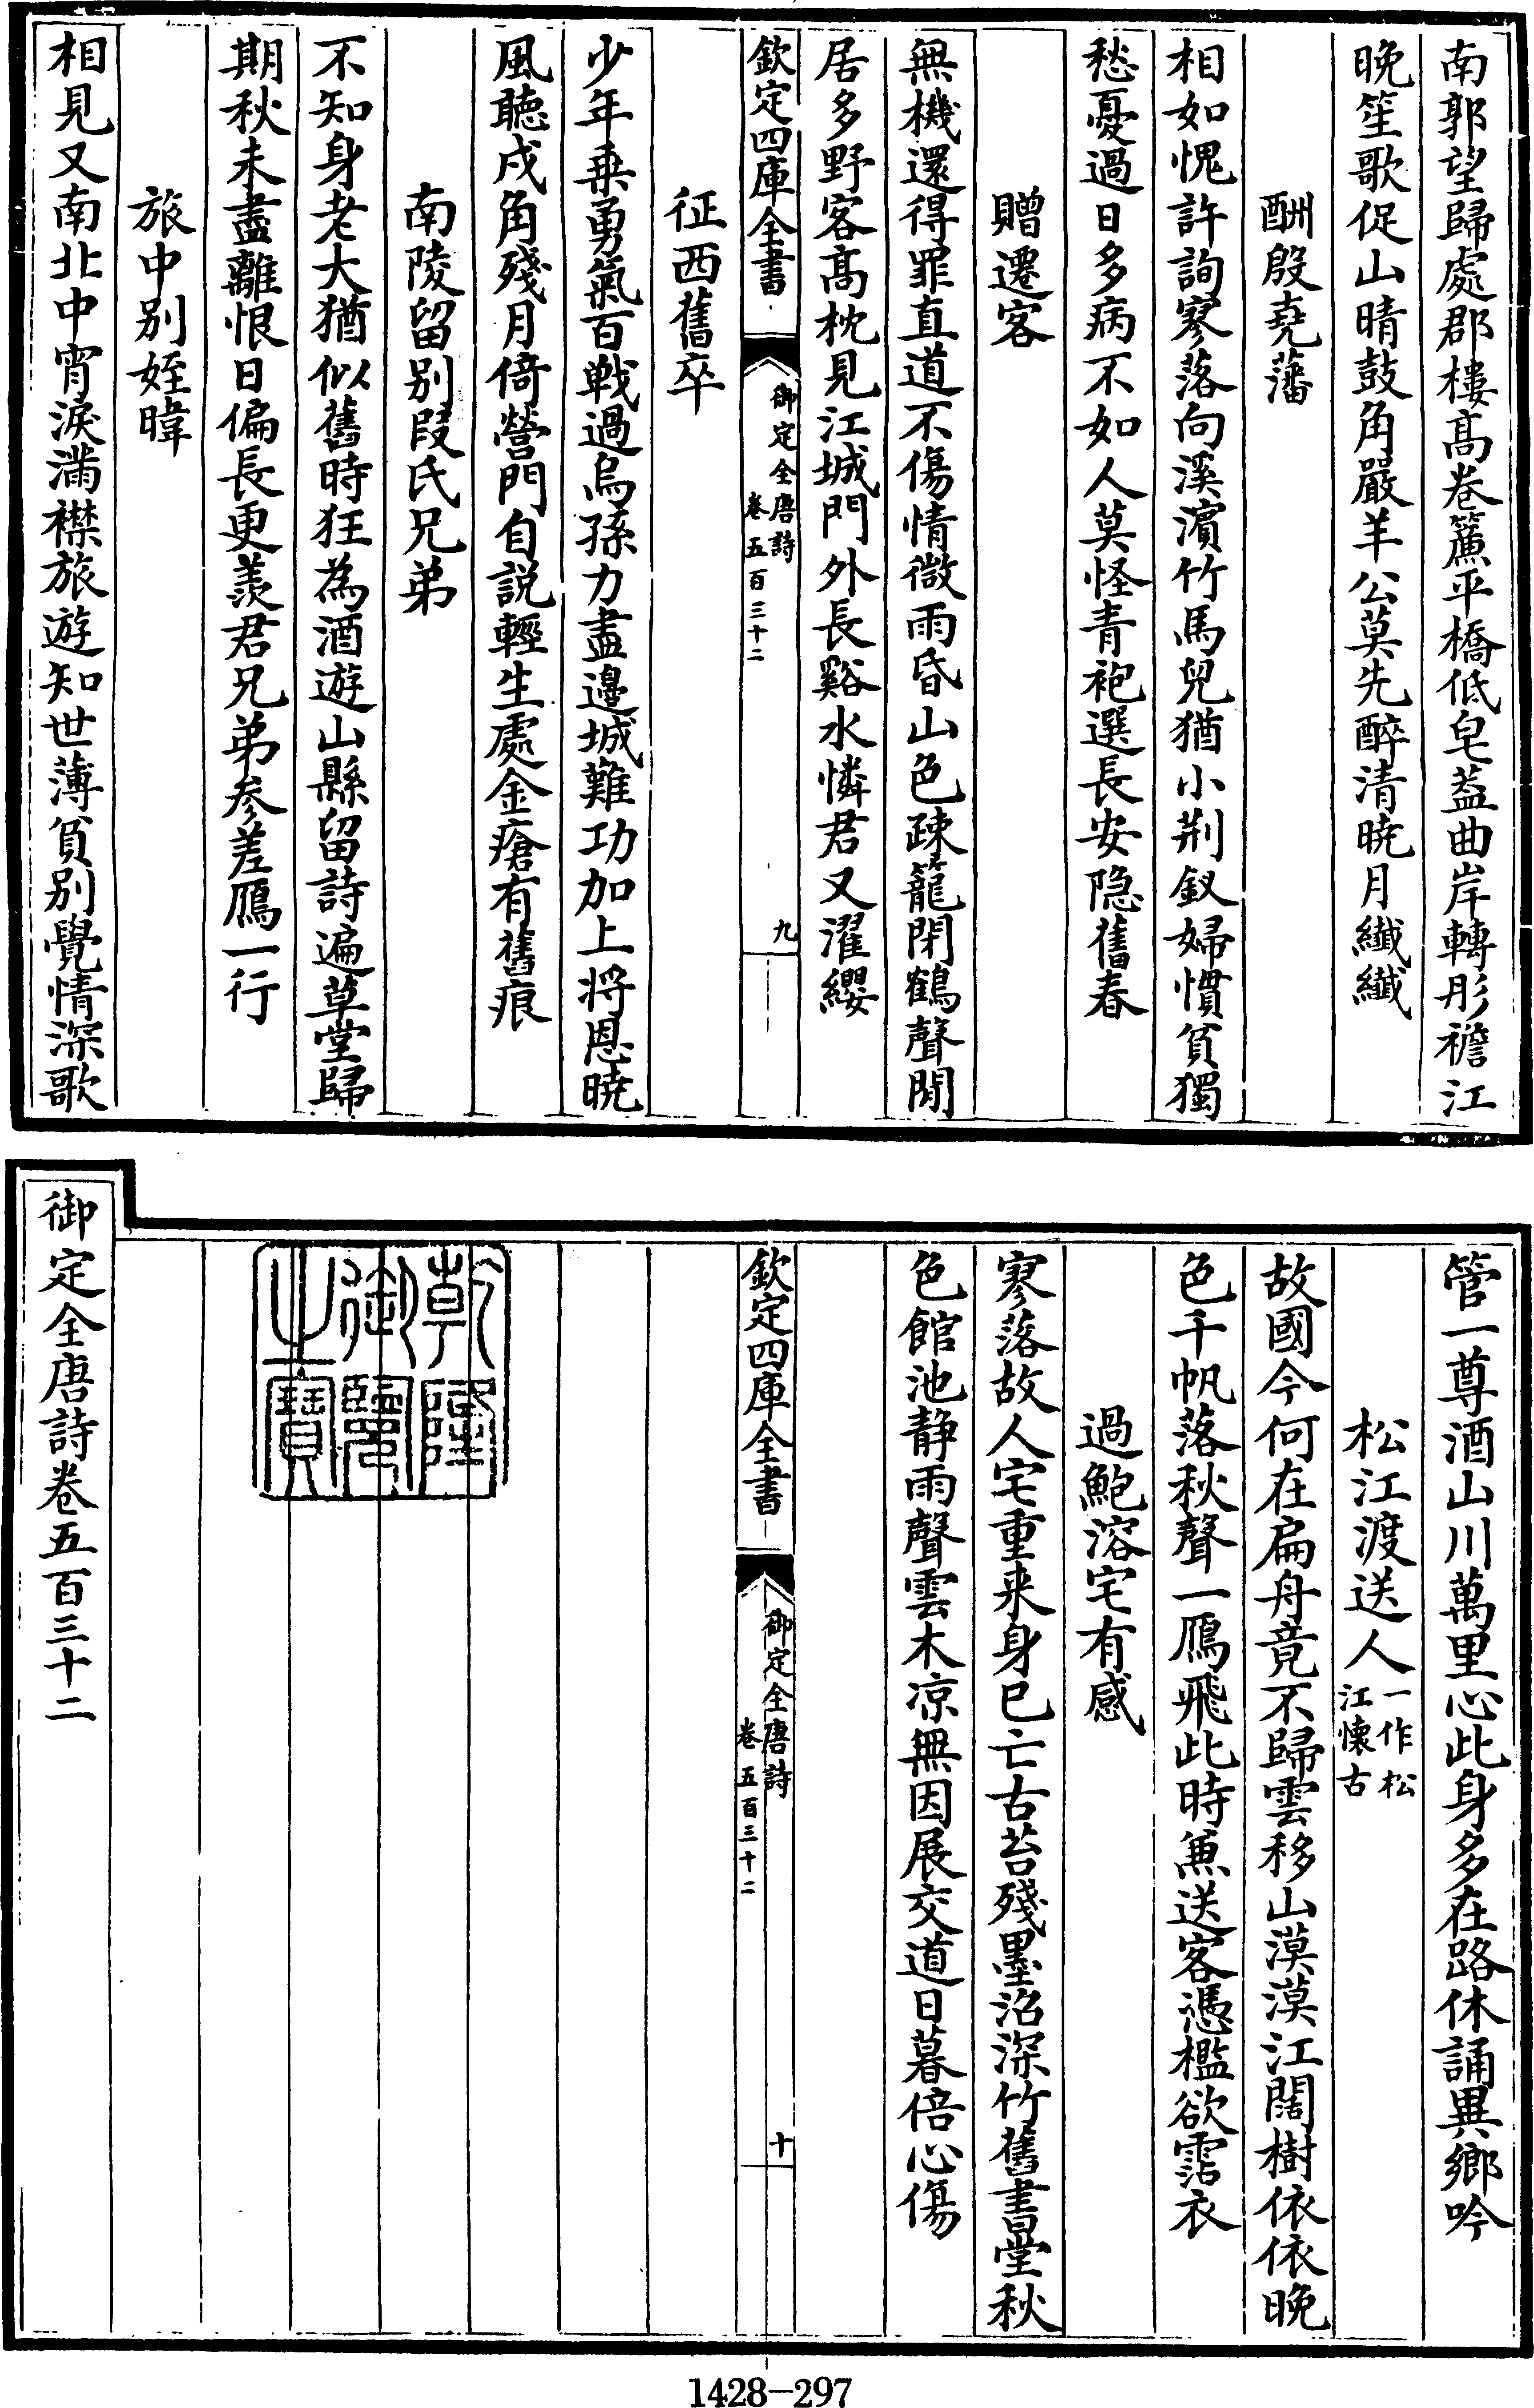 南郭望歸處郡樓髙卷簾平橋低皂葢曲岸轉彤襜江
晚笙歌促山晴鼓角嚴羊公莫先醉清曉月纖纖
酬殷堯藩
相如愧許詢寥落向溪濵竹馬兒猶小荆釵婦慣貧獨
愁憂過日多病不如人莫怪青袍選長安隐舊春
贈遷客
無機還得罪直道不傷情微雨昏山色疎籠閉鶴聲閒
居多野客髙枕見江城門外長谿水憐君又濯纓
欽定四庫全書
御定全唐詩
卷五百三十二
九
征西舊卒
少年乗勇氣百戰過烏孫力盡邉城難功加上將恩曉
風聴戍角殘月倚營門自説輕生處金瘡有舊痕
南陵留别段氏兄弟
不知身老大猶似舊時狂為酒遊山縣留詩遍草堂歸
期秋未盡離恨日偏長更羨君兄弟參差鴈一行
旅中别姪暐
相見又南北中宵淚滿襟旅遊知世薄貧别覺情深歌
管一尊酒山川萬里心此身多在路休誦異鄉吟
松江渡送人一作松
江懐古
故國今何在扁舟竟不歸雲移山漠漠江闊樹依依晚
色千帆落秋聲一鴈飛此時兼送客憑檻欲霑衣
過鮑溶宅有感
寥落故人宅重来身已亡古苔殘墨沼深竹舊書堂秋
色館池静雨聲雲木凉無因展交道日暮倍心傷
欽定四庫全書
御定全唐詩
卷五百三十二
十
乾隆
御覽
之寶
御定全唐詩卷五百三十二
1428-297